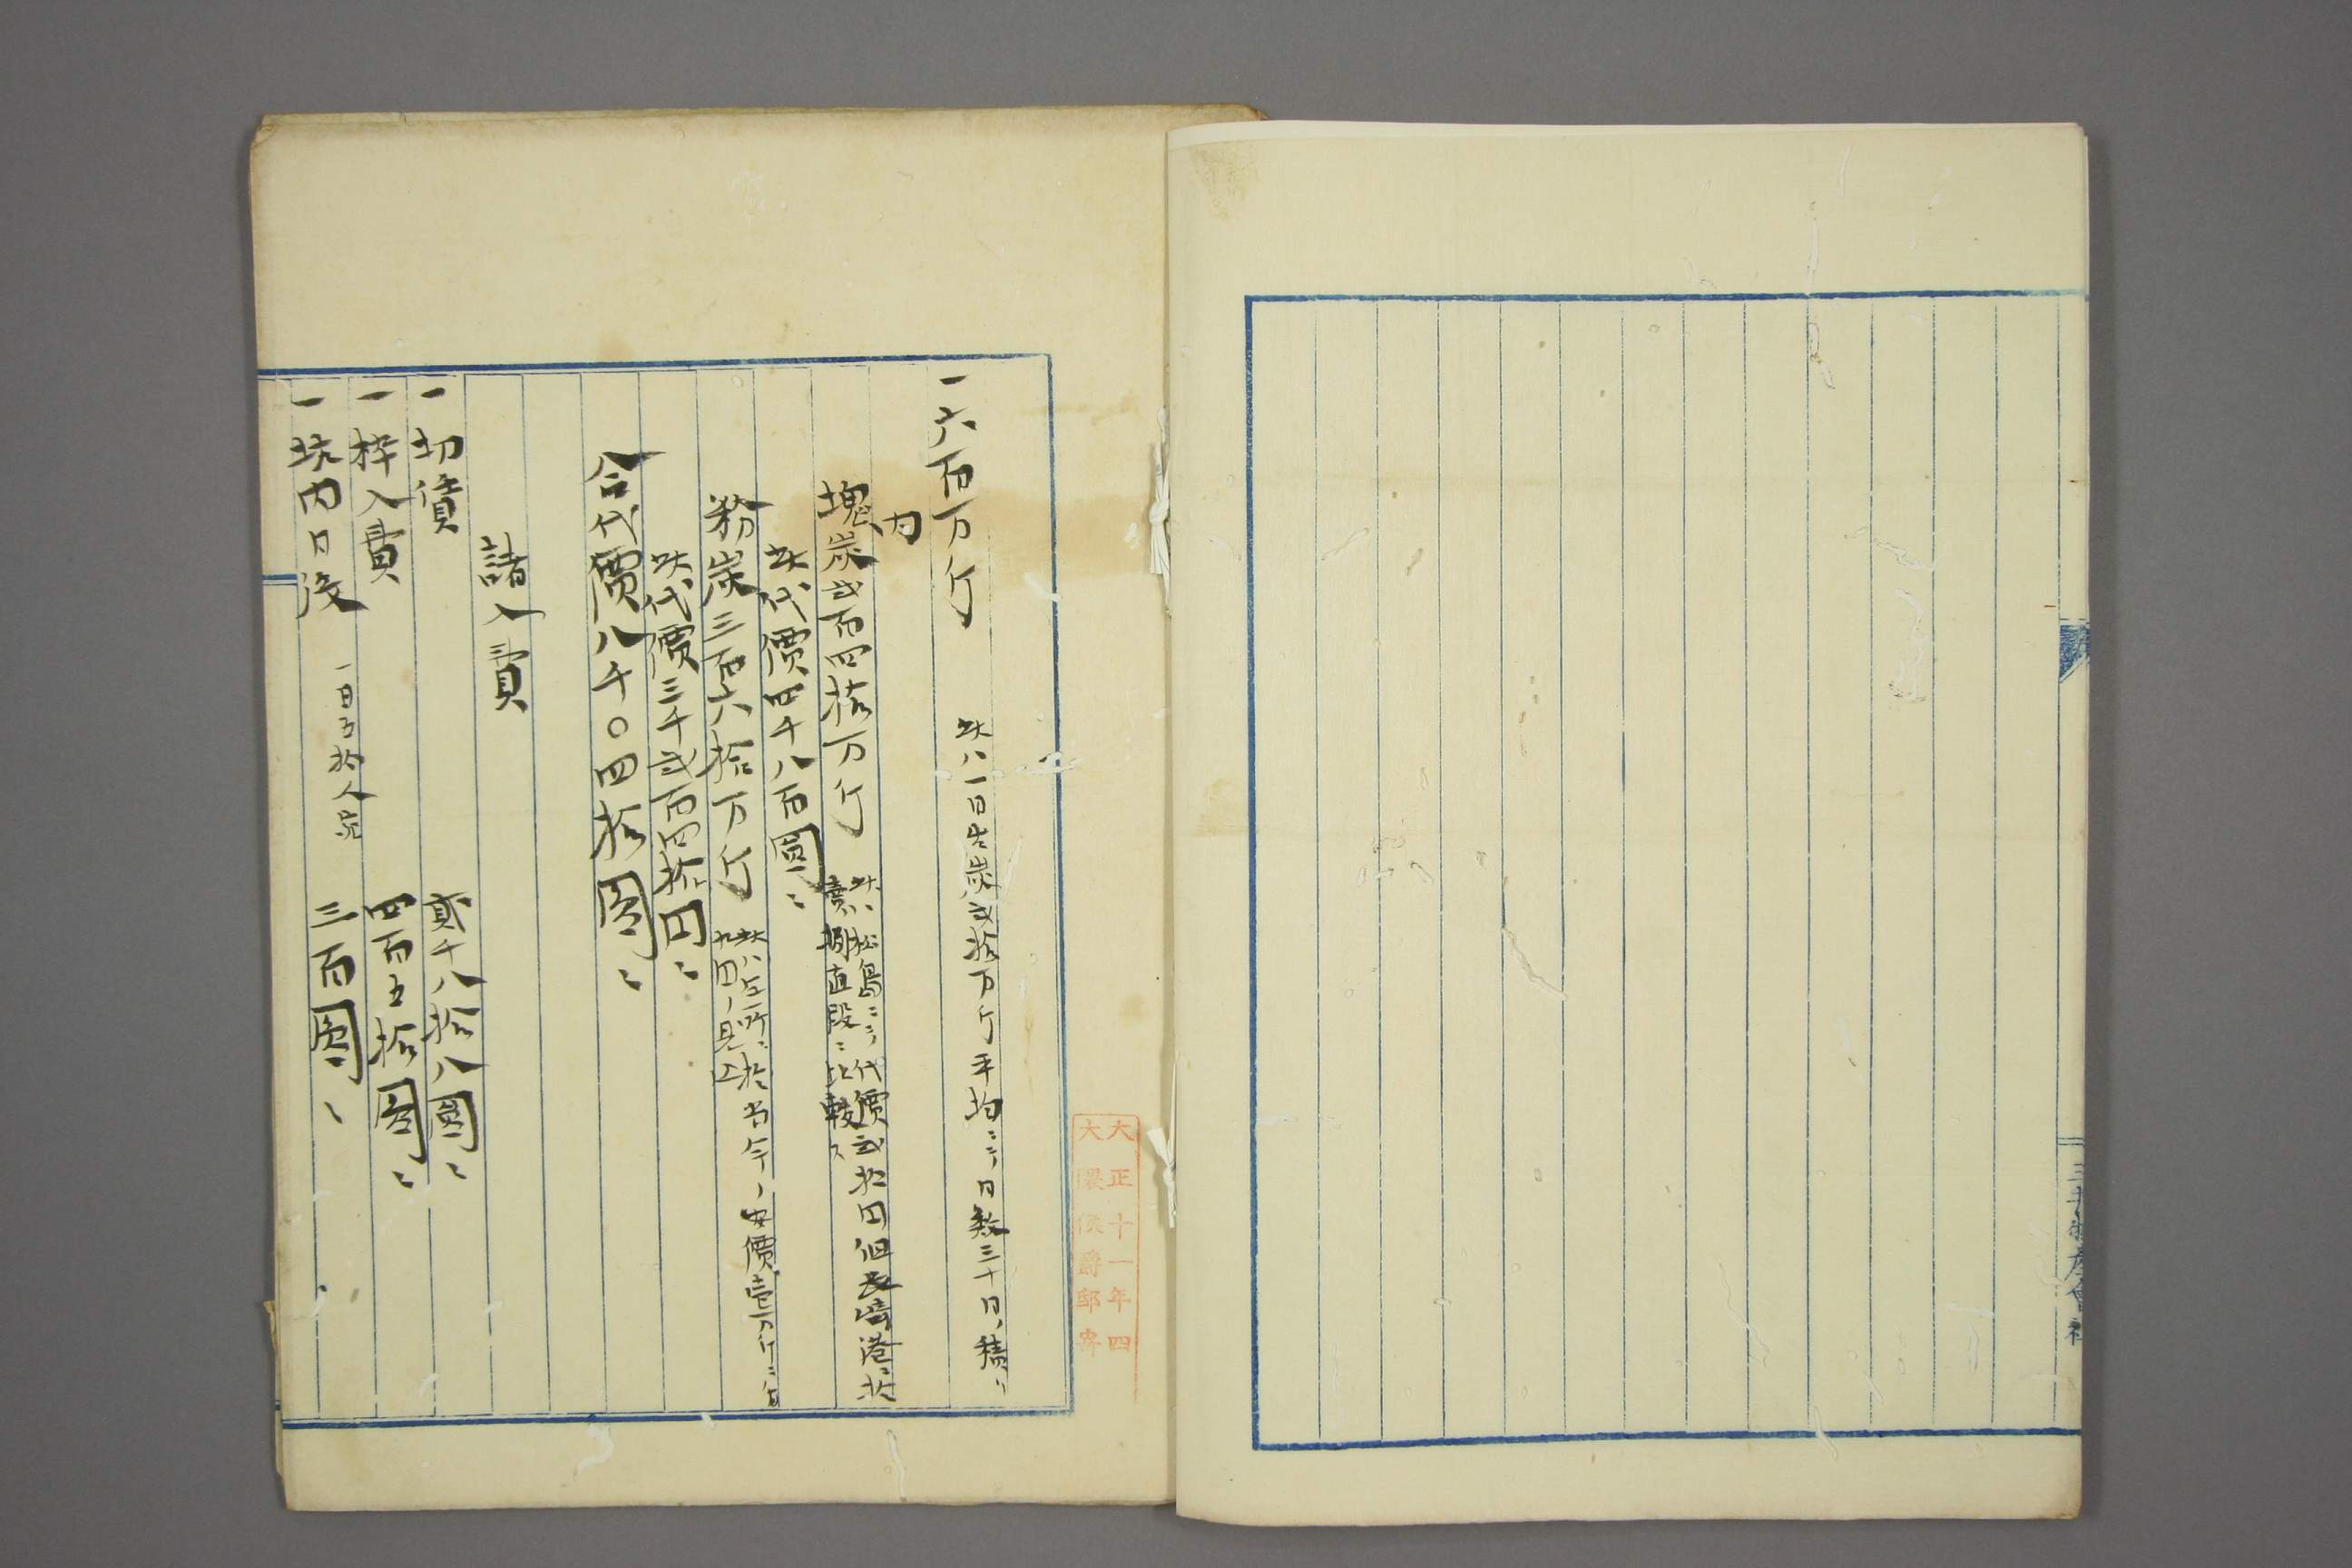 三井物産會社
大正十一年四
大隈侯爵邸寄
一六百万斤 此ハ一日出炭弐拾万斤平均ニシテ日数三十日ノ積リ
内
塊炭弐百四拾万斤 此ハ松島ニテ代價弐拾円但長崎港ニ於
賣捌直段ニ比較ス
此代價四千八百圓〻
粉炭三百六拾万斤 此ハ 所ニ於当今ノ安價壱万斤ニ付
九円ノ見込
此代價三千弐百四拾円〻
合代價八千〇四拾圓〻
諸入費
一切賃 貳千八拾八圓〻
一枠入費 四百五拾圓〻
一坑内日役 一日 拾人宛 三百圓〻